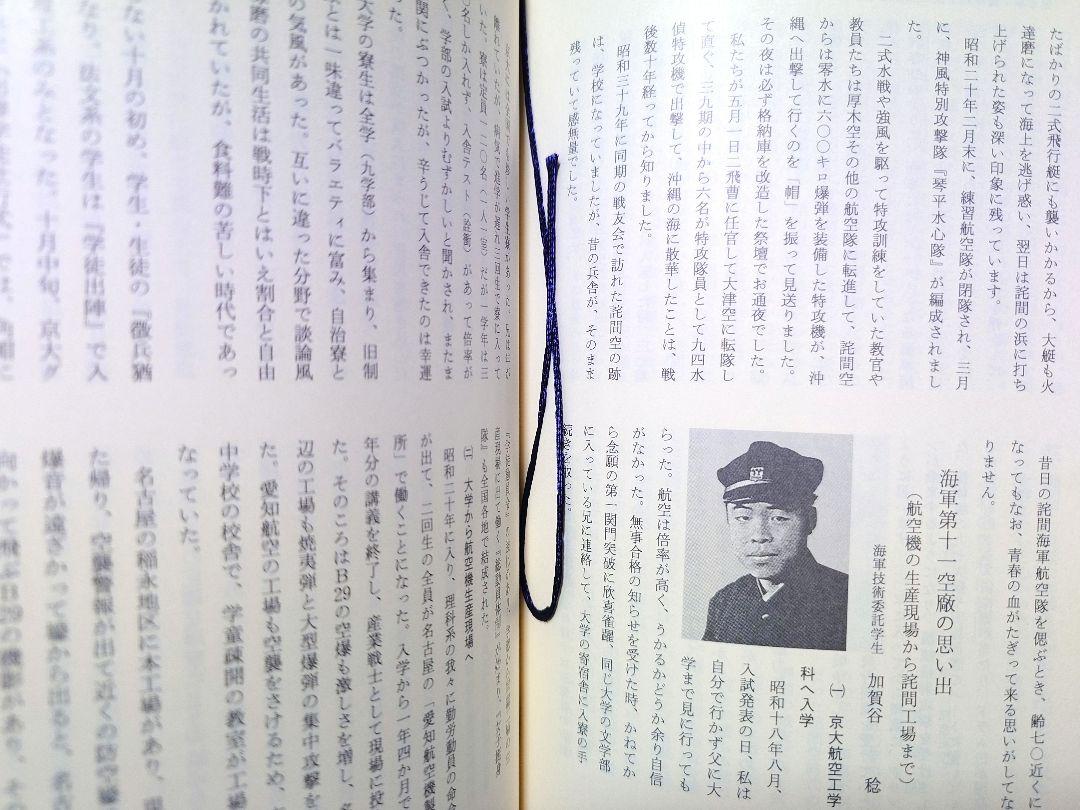 たばかりの二式飛行艇にも襲いかかるから、大艇も火
達磨になって海上を逃げ惑い、翌日は詫間の浜に打ち
上げられた姿も深い印象に残っています。
昭和二十年二月末に、練習航空隊が閉隊され、三月
に、神風特別攻撃隊『琴平水心隊』が編成されまし
た。
二式水戦や強風を駆って特攻訓練をしていた教官や
教員たちは厚木空その他の航空隊に転進して、詫間空
からは零水に六〇〇キロ爆弾を装備した特攻機が、沖
縄へ出撃して行くのを「帽」を振って見送りました。
その夜は必ず格納庫を改造した祭壇でお通夜でした。
私たちが五月一日二飛曹に任官して大津空に転隊し
て直ぐ、三九期の中から六名が特攻隊員として九四水
偵特攻機で出撃して、沖縄の海に散華したことは、戦
後数十年経ってから知りました。
昭和三十九年に同期の戦友会で訪れた詫間空の跡
は、学校になっていましたが、昔の兵舎が、そのまま
残っていて感無量でした。
昔日の詫間海軍航空隊を偲ぶとき、齢七〇近くに
なってもなお、青春の血がたぎって来る思いがしてな
りません。
海軍第十一空廠の思い出
(航空機の生産現場から詫間工場まで)
海軍技術委託学生 加賀谷 稔
㈠ 京大航空工学
科へ入学
昭和十八年八月、
入試発表の日、私は
自分で行かず父に大
学まで見に行っても
らった。航空は倍率が高く、うかるかどうか余り自信
がなかった。無事合格の知らせを受けた時、かねてか
ら念願の第一関門突破に欣喜雀躍、同じ大学の文学部
に入っている兄に連絡して、大学の寄宿舎に入寮の手
続きを取った。
いた。寮は定員一二〇名(一人一室)だが一学年は三
〇名しか入れず、入舎テスト(詮衡)があって倍率が
く、学部の入試よりむずかしいと聞かされ、またま
関にぶつかったが、辛うじて入舎できたのは幸運
った。
大学の寮生は全学(九学部)から集まり、旧制
とは一味違ってバラエティに富み、自治寮と
の気風があった。互いに違った分野で談論風
磨の共同生活は戦時下とはいえ割合と自由
かれていたが、食料難の苦しい時代であっ
ない十月の初め、学生・生徒の『徴兵猶
なり、法文系の学生は『学徒出陣』で入
工系のみとなった。十月中旬、京大グ
隊』も全国各地で結成された。
㈡ 大学から航空機生産現場へ
昭和二十年に入り、理科系の我々に勤労動員の命令
が出て、二回生の全員が名古屋の「愛知航空機製
所」で働くことになった。入学から一年四か月で
年分の講義を終了し、産業戦士として現場に投
た。そのころはB29の空爆も激しさを増し、名
辺の工場も焼夷弾と大型爆弾の集中攻撃を
た。愛知航空の工場も空襲をさけるため、
中学校の校舎で、学童疎開の教室が工場
なっていた。
名古屋の稲永地区に本工場があり、現
た帰り、空襲警報が出て近くの防空壕
爆音が遠ざかって壕から出ると、名古
向かって飛ぶB29の機影があり、その